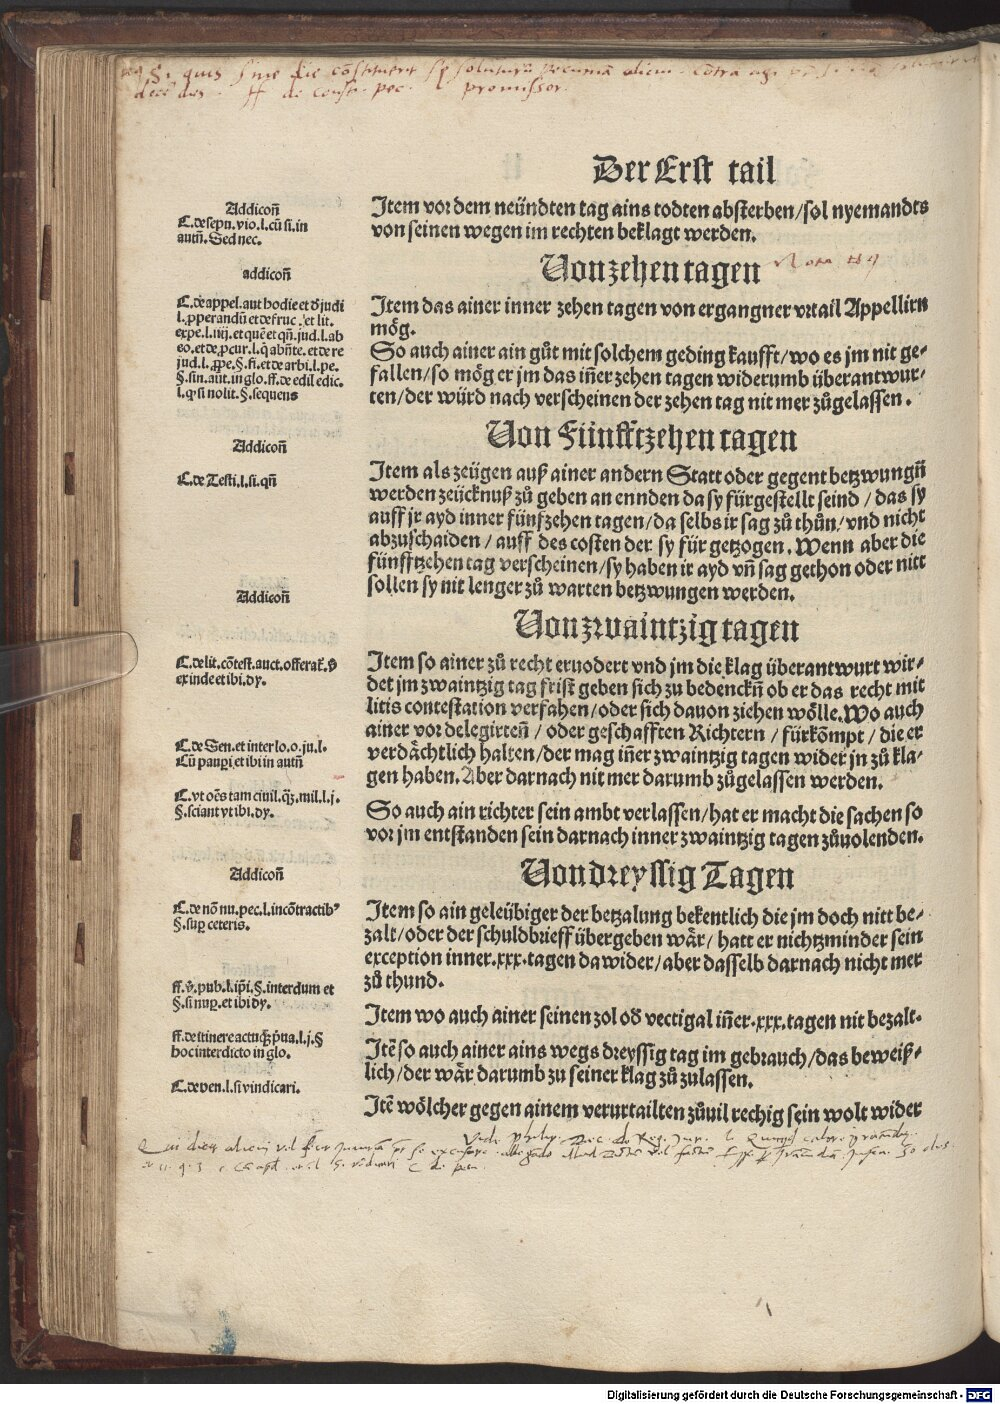 Si quis sine die constituerit se soluturum pecuniam
promissor.
Der Erst tail
Addicoñ
C. de sepu. vio. l. cū si. in
autñ. Sed nec.
Item vor dem neündten tag ains todten absterben/sol nyemandts
von seinen wegen im rechten beklagt werden.
Von zehen tagen
addicoñ
C. de appel. aut hodie et d' judi
l. ꝓperandū et de fruc. et lit.
expe. l. iiij. et quē et qñ. jud. l. ab
eo. et de ꝓcur. l. q̄ abñte. et de re
jud. l. ꝓpe. §. fi. et de arbi. l. pe.
§. fin. aut. in glo. ff. de edil edic.
l. q̵ si nolit. §. sequens
Item das ainer inner zehen tagen von ergangner vrtail Appellirn
mög.
So auch ainer ain gůt mit solchem geding kaufft/wo es jm nit ge-
fallen/so mög er jm das iñer zehen tagen widerumb überantwur-
ten/der würd nach verscheinen der zehen tag nit mer zůgelassen.
Von Fünfftzehen tagen
Addicoñ
C. de Testi. l. si. qñ
Item als zeügen auß ainer andern Statt oder gegent betzwungñ
werden zeücknuß zů geben an ennden da sy fürgestellt seind / das sy
auff jr ayd inner fünfzehen tagen/da selbs ir sag zů thůn/vnd nicht
abzuschaiden / auff des costen der sy für getzogen. Wenn aber die
fünfftzehen tag verscheinen/sy haben ir ayd vñ sag gethon oder nitt
sollen sy nit lenger zů warten betzwungen werden.
Von zwaintzig tagen
Addicoñ
C. de lit. cōtest. auct. offerat̄. ꝯ
ex inde et ibi. dy.
C. de Sen. et interlo. o. ju. l.
Cū pauꝑi et ibi in autñ
C. vt oēs tam ciuil. q̄ꝫ. mil. l. j.
§. sciant vt ibi. dy.
Item so ainer zů recht eruodert vnd jm die klag überantwurt wir-
det jm zwaintzig tag frist geben sich zu bedenckñ ob er das recht mit
litis contestation verfahen/oder sich dauon ziehen wölle. Wo auch
ainer vor delegirteñ / oder geschafften Richtern / fürkōmpt / die er
verdächtlich halten/der mag iñer zwaintzig tagen wider jn zů kla-
gen haben. Aber darnach nit mer darumb zůgelassen werden.
So auch ain richter sein ambt verlassen/hat er macht die sachen so
vor jm entstanden sein darnach inner zwaintzig tagen zůuolenden.
Von dreyssig Tagen
Addicoñ
C. de nō nu. pec. l. incōtractib9
§. suꝑ ceteris.
ff. ꝟ. pub. l. ip̄i. §. interdum et
§. si nuꝑ. et ibi dy.
ff. de itinere actuq̄ꝫ p̄ua. l. j. §
hoc interdicto in glo.
C. de ven. l. si vindicari.
Item so ain geleübiger der betzalung bekentlich die jm doch nitt be-
zalt/oder der schuldbrieff übergeben wär/ hatt er nichtzminder sein
exception inner.xxx.tagen da wider/aber dasselb darnach nicht mer
zů thund.
Item wo auch ainer seinen zol od̕ vectigal iñer.xxx.tagen nit bezalt.
Itē so auch ainer ains wegs dreyssig tag im gebrauch/das beweiß-
lich/der wär darumb zu seiner klag zů zulassen.
Itē wölcher gegen ainem verurtailten zůuil rechig sein wolt wider
Digitalisierung gefördert durch die Deutsche Forschungsgemeinschaft - DFG